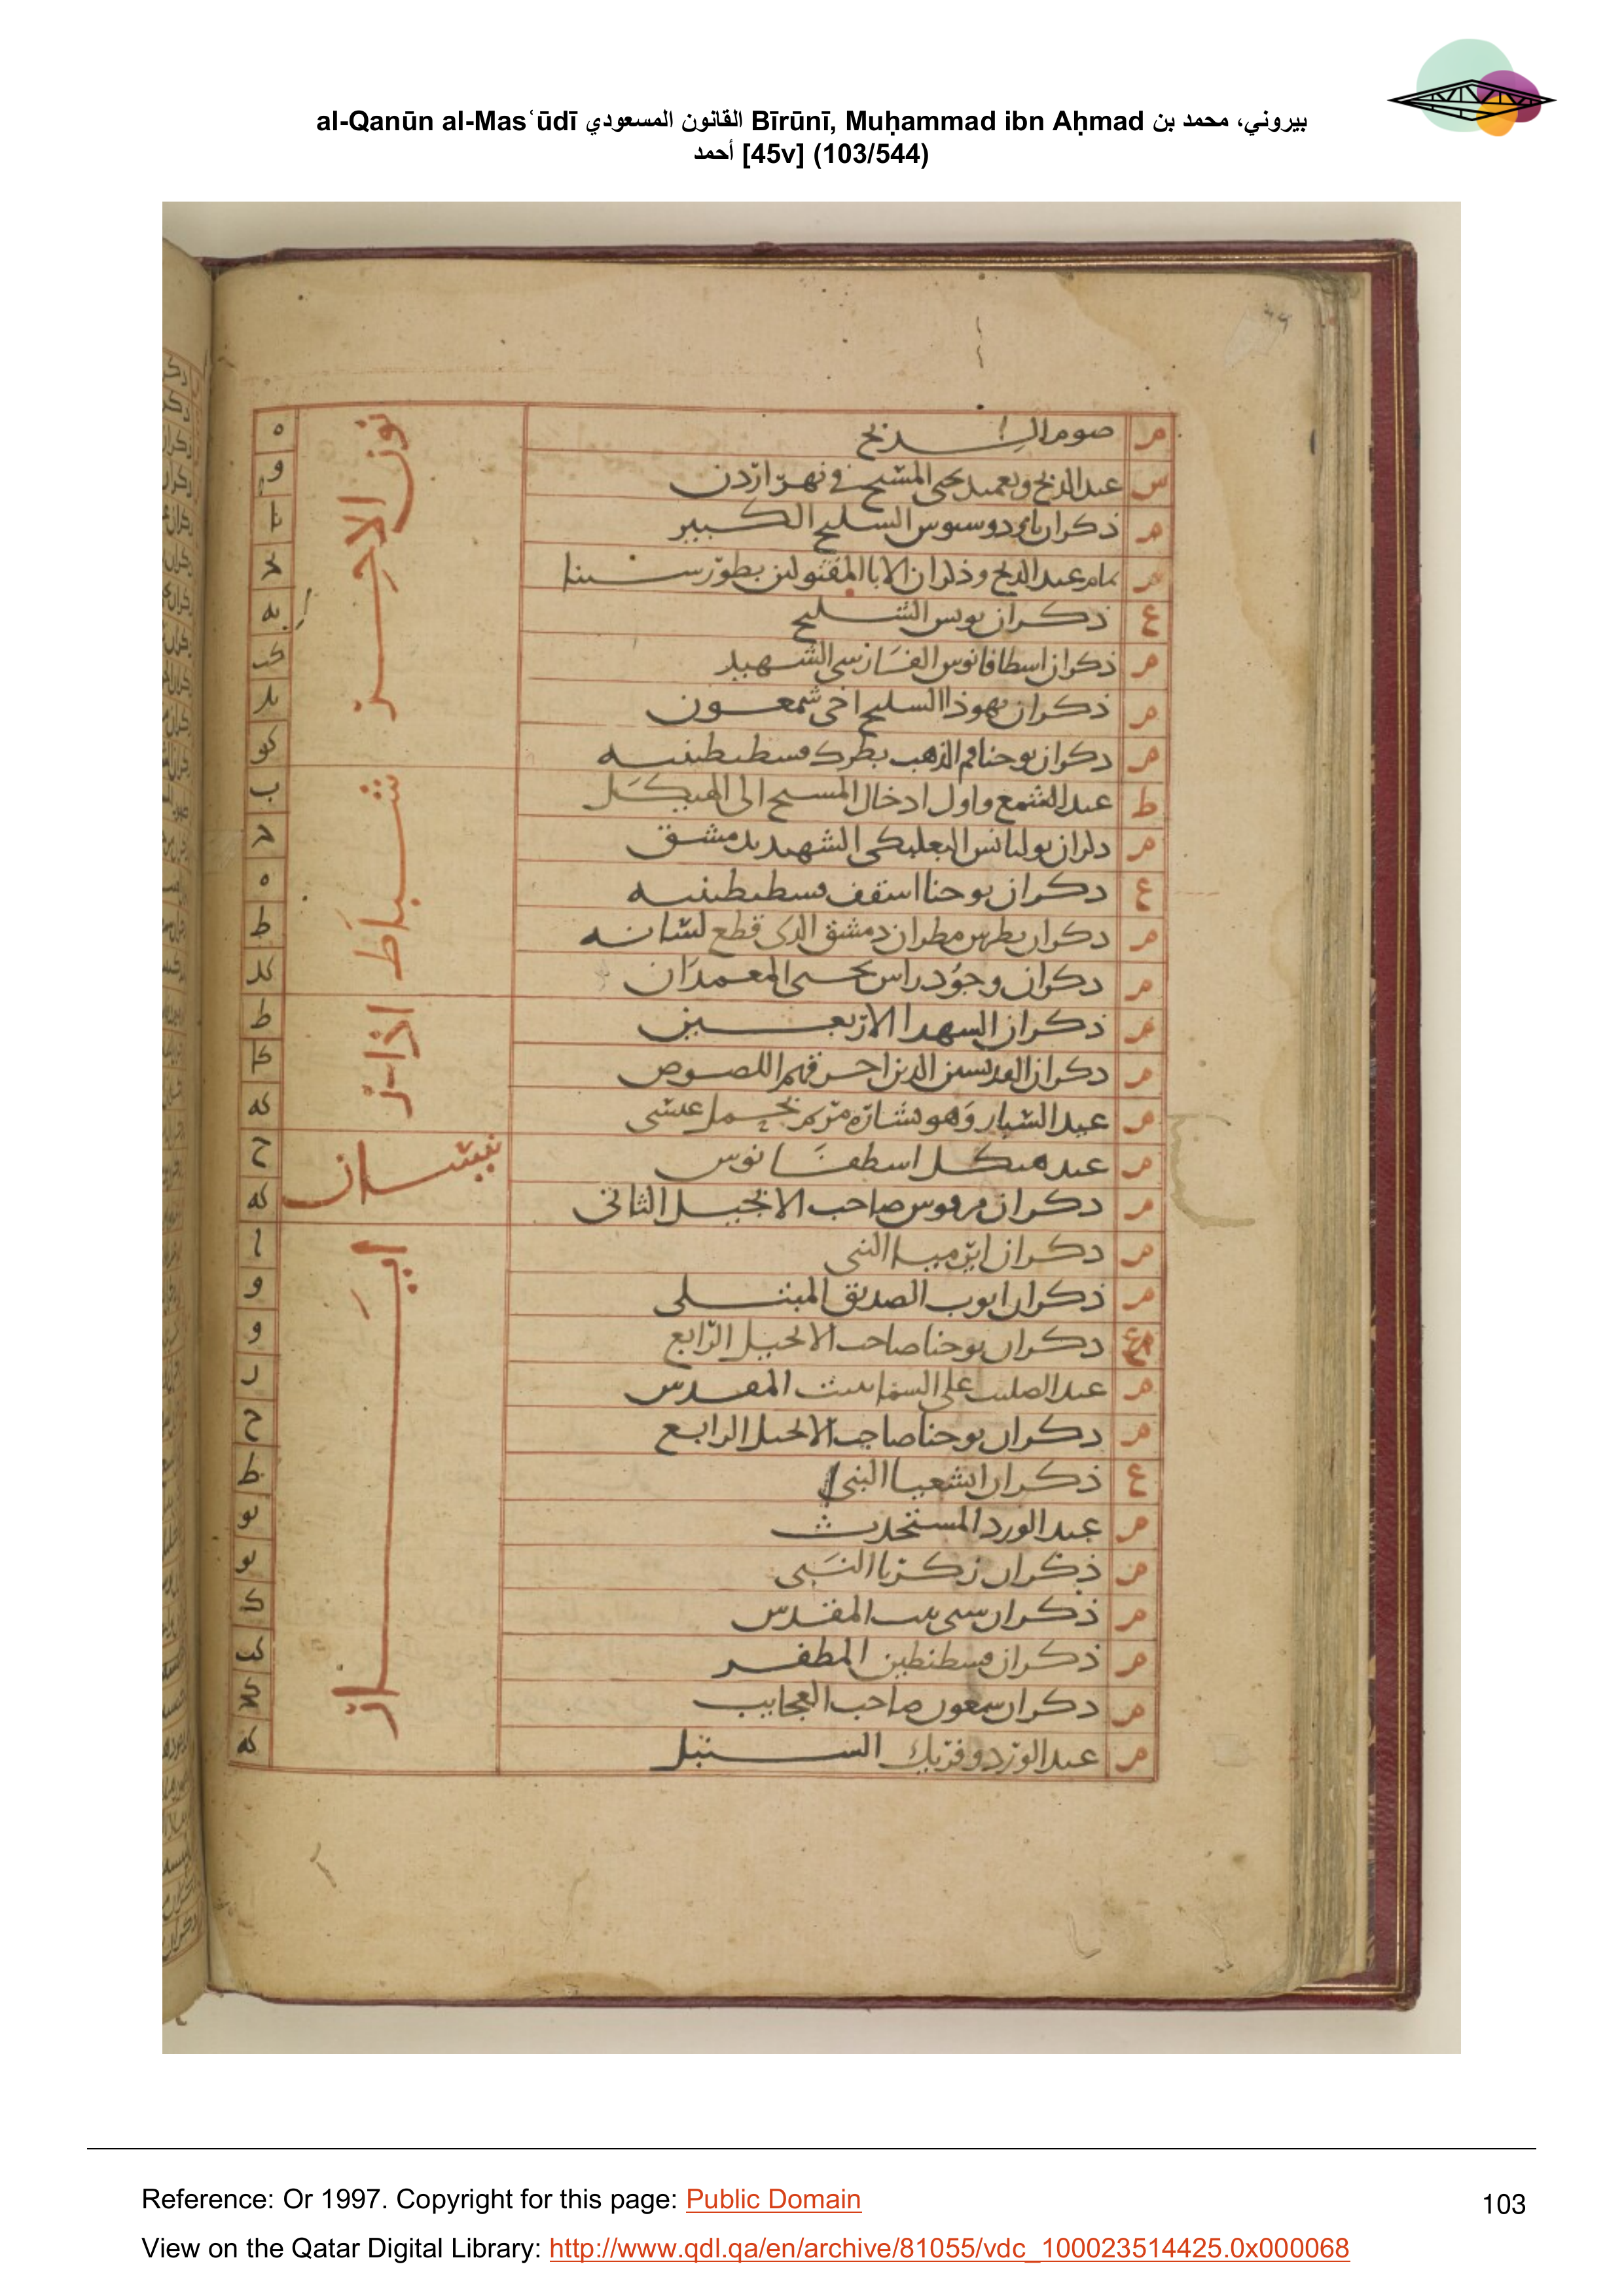 al-Qanūn al-Mas‘ūdī القانون المسعودي Bīrūnī, Muḥammad ibn Aḥmad بيروني، محمد بن
أحمد [45v] (103/544)
م صوم الدنح ه
س عيد الدنح وتعميد يحيى المسيح في نهر اردن و
م ذكران السليح الكبير يا
م تمام عيد الدنح وذكران الابا المقتولين بطور سينا
ع ذكران بولس السليح يه
م ذكران اسطافانوس الشهيد كب
م ذكران يهوذا السليح اخي شمعون
م دكران يوحنا فم الذهب بطرك قسطنطينيه
كانون الاخير
ط عيد الشمع واول ادخال المسيح الى الهيكل ب
م ذكران البعلبكي الشهيد بدمشق
ع دكران يوحنا اسقف قسطنطينيه ه
م دكران بطرس مطران دمشق الذي قطع لسانه ط
م دكران وجود راس يحيى المعمدان كد
شباط
م ذكران الشهدا الاربعين ط
م دكران القديسين الذين احرقهم اللصوص كا
م عيد السبار وهو بشارة مريم بحمل عيسى كه
اذار
م عيد هيكل اسطفانوس ح
م دكران مرقوس صاحب الانجيل الثاني كه
نيسان
م دكران ايرميا النبي ا
م ذكران ايوب الصديق المبتلى و
دكران يوحنا صاحب الانجيل الرابع و
م عيد الصليب على السما ببيت المقدس ر
م دكران يوحنا صاحب الانجيل الرابع ح
ع ذكران اشعيا النبي ط
م عيد الورد المستحدث يو
م ذكران زكريا النبي يو
م ذكران سبي بيت المقدس ك
م ذكران قسطنطين المظفر كب
م دكران سمعون صاحب العجايب كد
م عيد الورد وفريك السنبل كه
ايار
Reference: Or 1997. Copyright for this page: Public Domain
103
View on the Qatar Digital Library: http://www.qdl.qa/en/archive/81055/vdc_100023514425.0x000068